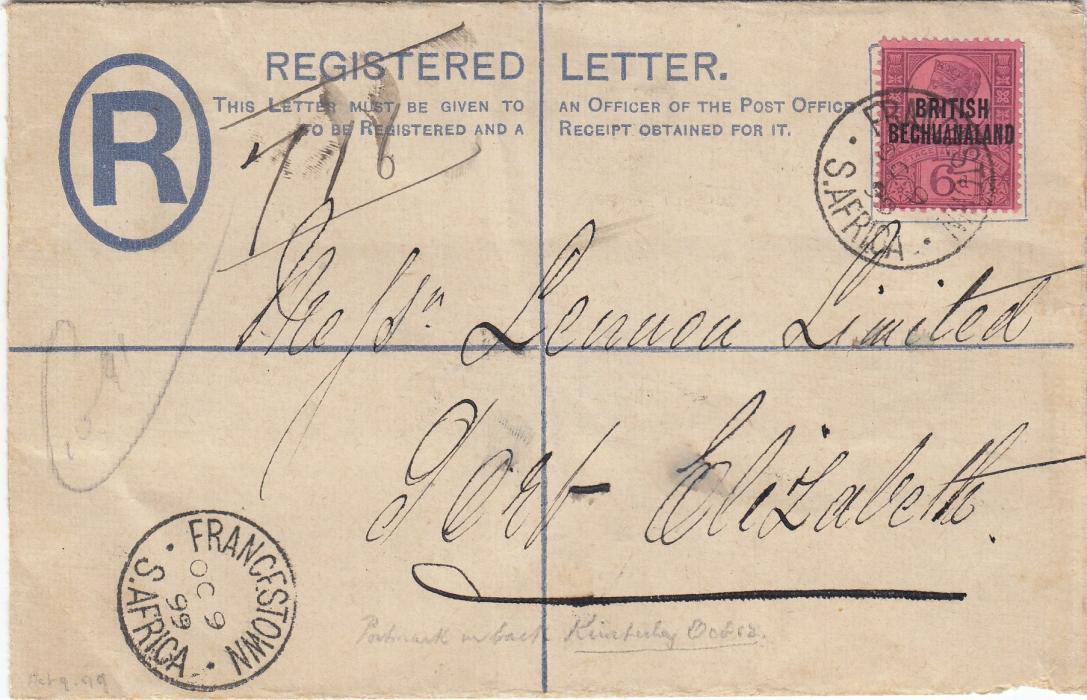 R
REGISTERED LETTER.
THIS LETTER MUST BE GIVEN TO AN OFFICER OF THE POST OFFICE
TO BE REGISTERED AND A RECEIPT OBTAINED FOR IT.
6
BRITISH
BECHUANALAND
6d
S. AFRICA
Messrs Lennon Limited
Port Elizabeth.
FRANCESTOWN
OC 9
99
S. AFRICA
Postmark on back Kimberley Oct 12.
Oct 9. 99